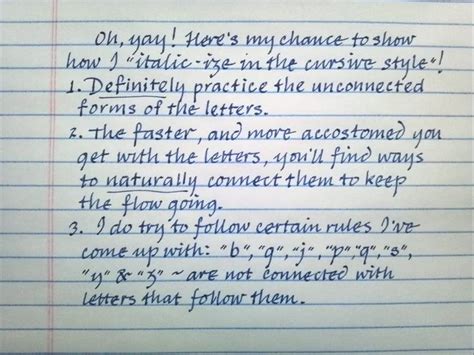 Oh, yay! Here's my chance to show
how I "italic-ize in the cursive style"!
1. Definitely practice the unconnected
forms of the letters.
2. The faster, and more accostomed you
get with the letters, you'll find ways
to naturally connect them to keep
the flow going.
3. I do try to follow certain rules I've
come up with: "b", "g", "j", "p", "q", "s",
"y" & "z" ~ are not connected with
letters that follow them.